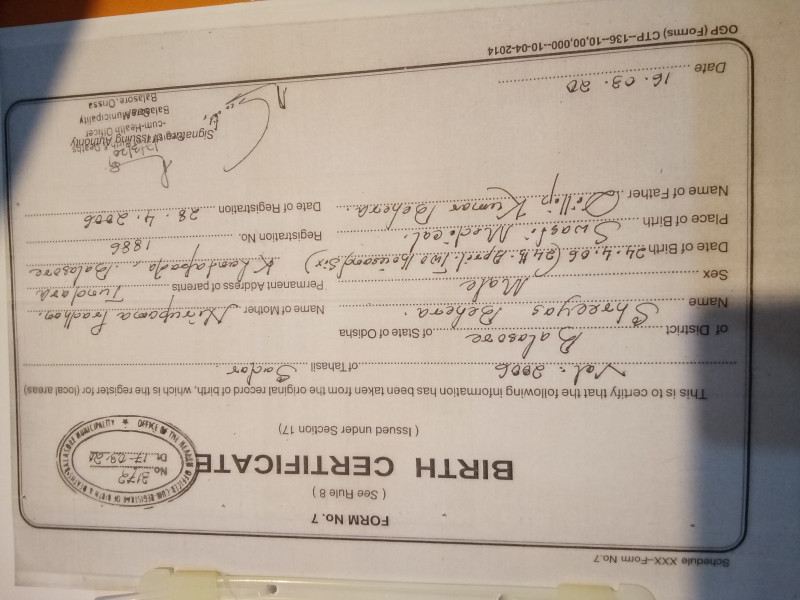 Schedule XXX-Form No.7
FORM No. 7
( See Rule 8 )
BIRTH CERTIFICATE
( Issued under Section 17)
No. 3172
Dt. 17-03-20
BALASORE MUNICIPALITY ★ OFFICE OF THE HEALTH OFFICER-CUM-REGISTRAR OF BIRTH &
This is to certify that the following information has been taken from the original record of birth, which is the register for (local areas)
Val: 2006 of Tahasil Sadar
of District Balasore of State of Odisha
Name Shreeyas Behera. Name of Mother Nirupoma Pradhan.
Sex Male Permanent Address of parents Tundara
Date of Birth 24.4.06 (24th April Two thousand Six) Khantapada, Balasore
Place of Birth Swasti Medical. Registration No. 1886
Name of Father Dillip Kumar Behera. Date of Registration 28.4.2006
Signature of Issuing Authority
-cum-Health Officer
Balasore Municipality
Balasore, Orissa
Date 16.03.20
OGP (Forms) CTP-136-10,00,000-10-04-2014